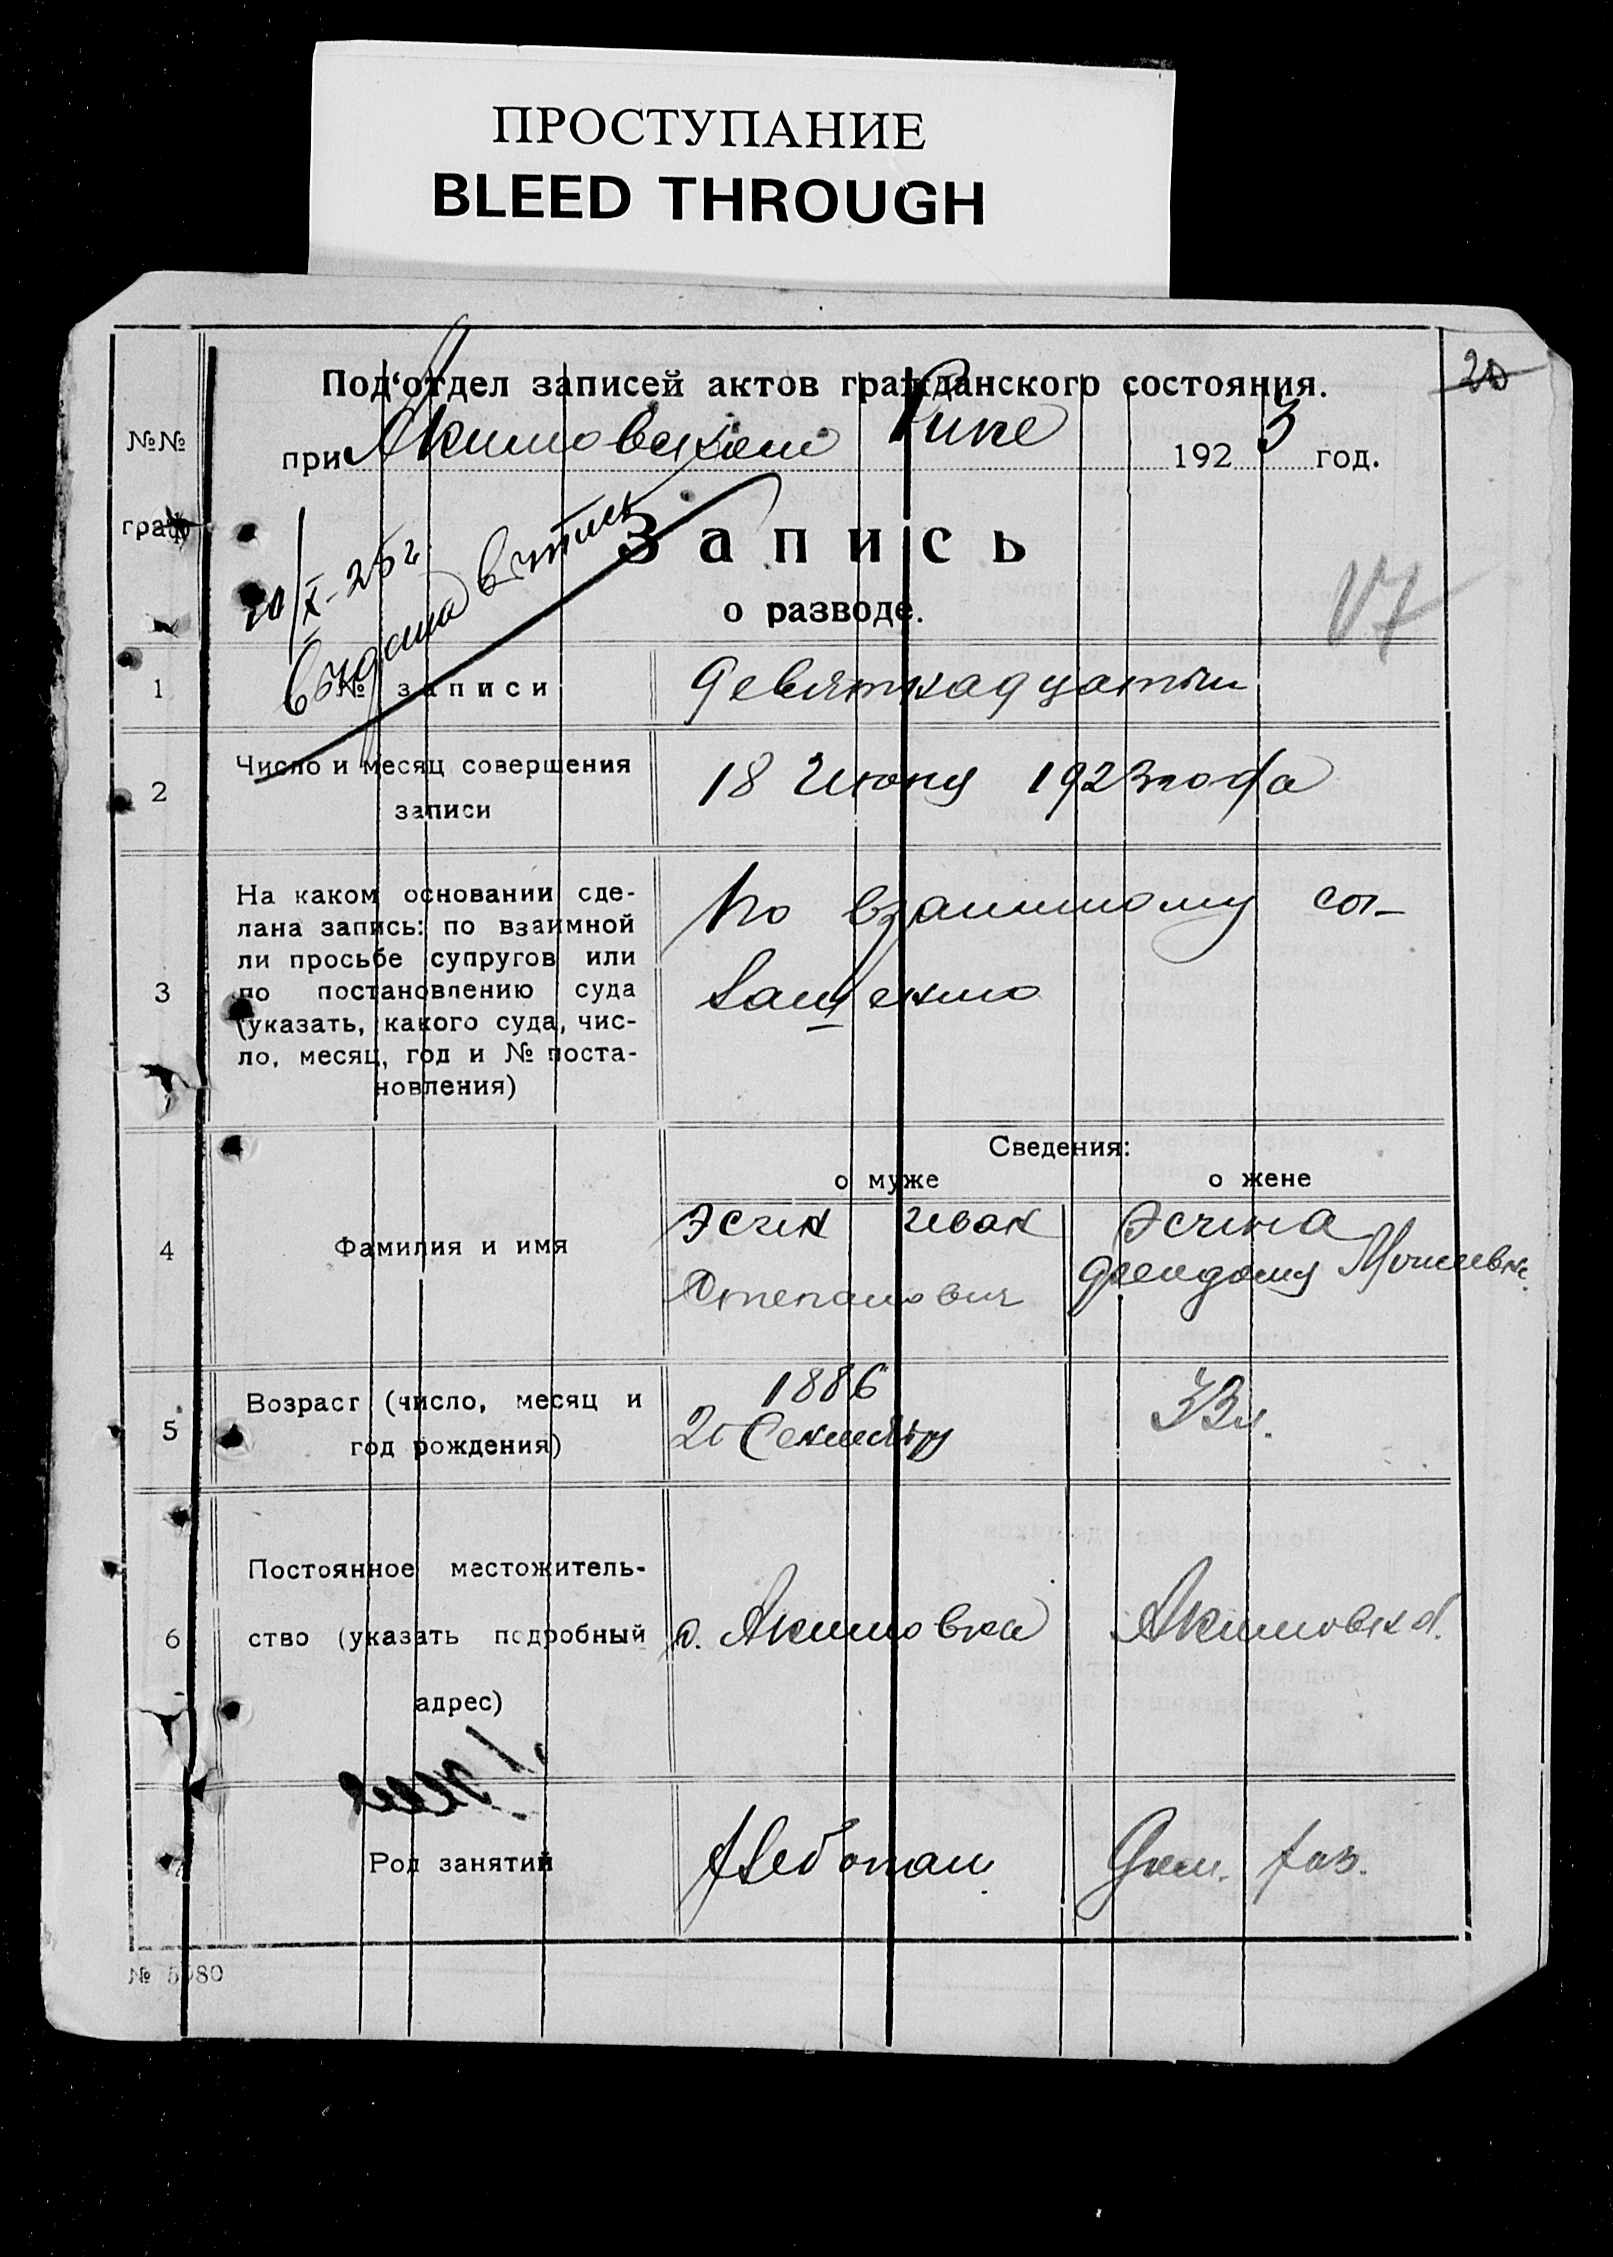 ПРОСТУПАНИЕ
BLEED THROUGH
20
Под‘отдел записей актов гражданского состояния.
при Акимовском Рике 1923 год.
№№
граф
Запись
о разводе.
20/X-25 г.
Выдана выпись
17
1 № записи Девятнадцатый
2 Число и месяц совершения
записи
18 Июня 1923 года
3 На каком основании сде-
лана запись: по взаимной
ли просьбе супругов или
по постановлению суда
(указать, какого суда, чис-
ло, месяц, год и № поста-
новления)
По взаимному сог-
лашению
Сведения:
о муже о жене
4 Фамилия и имя
Эсчик Иван
Степанович
Эсчина
Моисеевн.
5 Возраст (число, месяц и
год рождения)
1886
Сентября
33 л.
6 Постоянное местожитель-
ство (указать подробный
адрес)
с. Акимовка
Акимовка
7 Род занятий
Хлебопаш.
Дом. хоз.
№ 5980